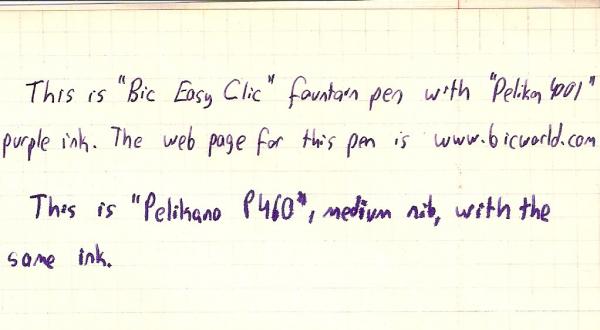 This is "Bic Easy Clic" fountain pen with "Pelikan 4001"
purple ink. The web page for this pen is www.bicworld.com
This is "Pelikano P460", medium nib, with the
same ink.